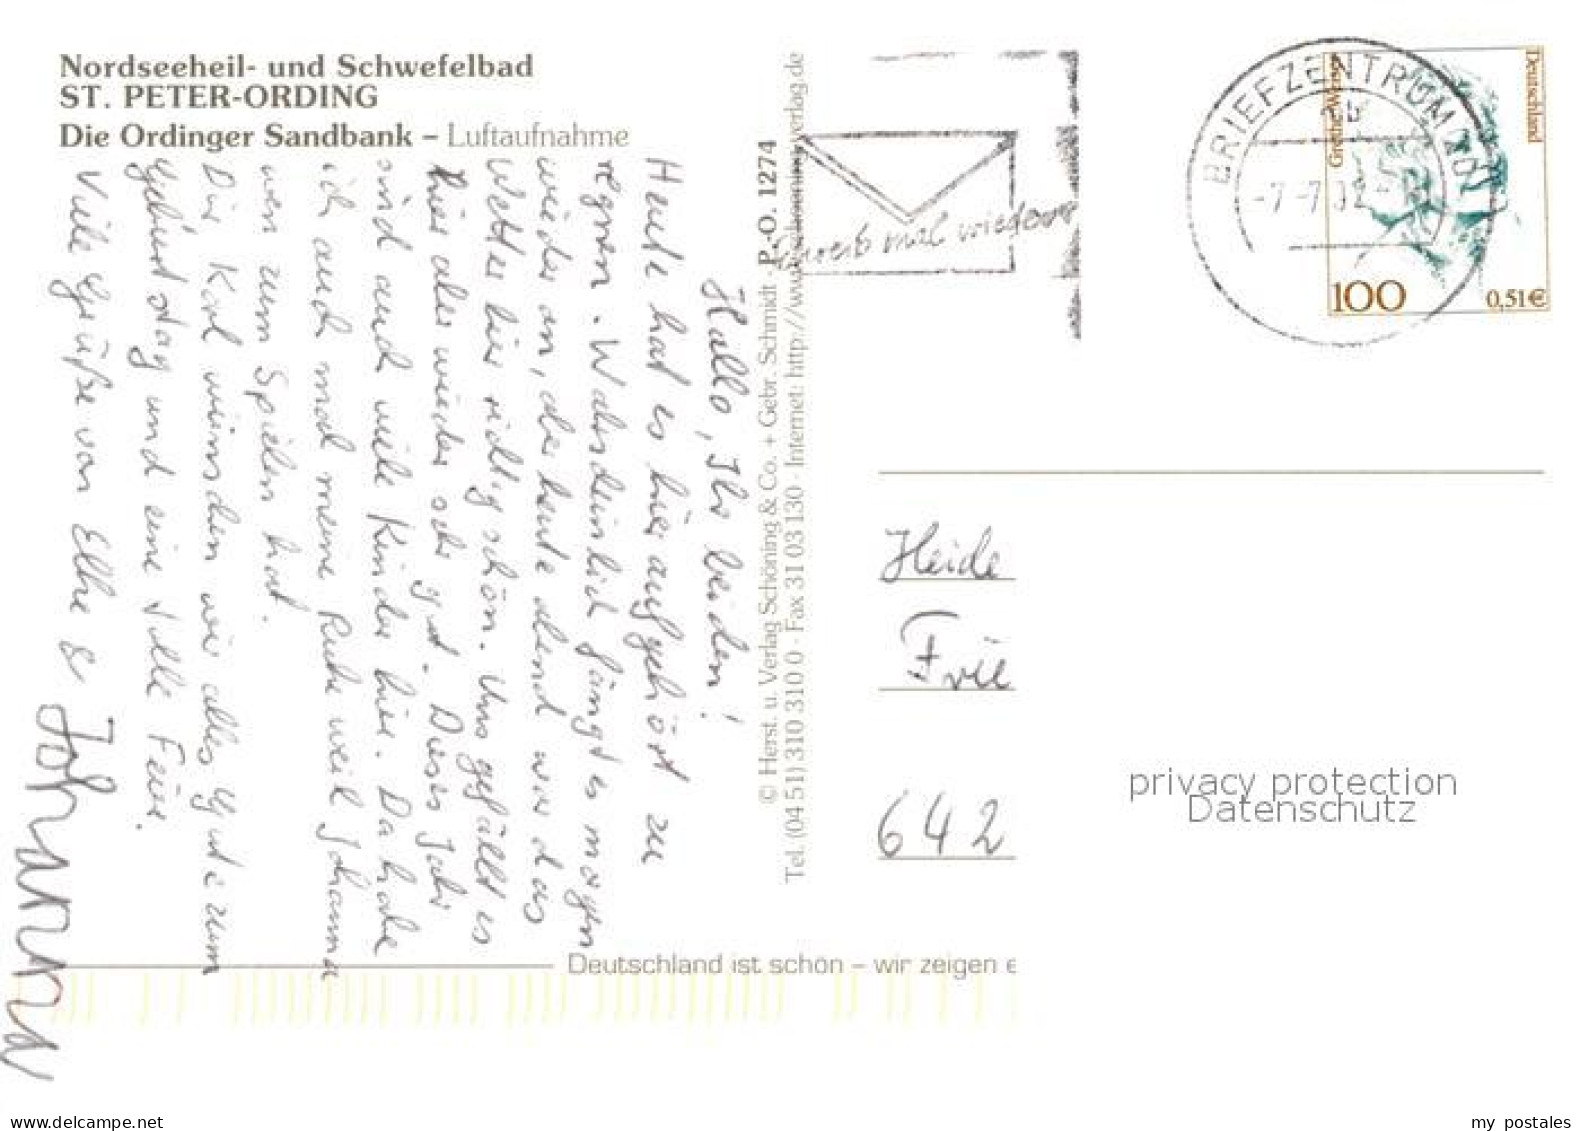 Nordseeheil- und Schwefelbad
ST. PETER-ORDING
Die Ordinger Sandbank – Luftaufnahme
Hallo, Ihr beiden!
Heute hat es hier aufgehört zu
regnen. Wahrscheinlich fängt es morgen
wieder an, aber heute abend war das
Wetter hier richtig schön. Uns gefällt es
hier aber wieder sehr gut. Dieses Jahr
sind auch viele Kinder hier. Da habe
ich auch mal meine Ruhe weil Johanna
wen zum Spielen hat.
Dir Karl wünschen wir alles Gute zum
Geburtstag und eine tolle Feier.
Viele Grüße von Elke &
Johanna
P.-O. 1274
© Herst. u. Verlag Schöning & Co. + Gebr. Schmidt
Tel. (04 51) 310 310 0 · Fax 31 03 130 · Internet: http://www.schoening-verlag.de
Schreib mal wieder
BRIEFZENTRUM
-7.-7.02
Deutschland
Grethe Weiser
100
0,51€
Heide
Frie
642
privacy protection
Datenschutz
Deutschland ist schön – wir zeigen e
delcampe.net
my postales